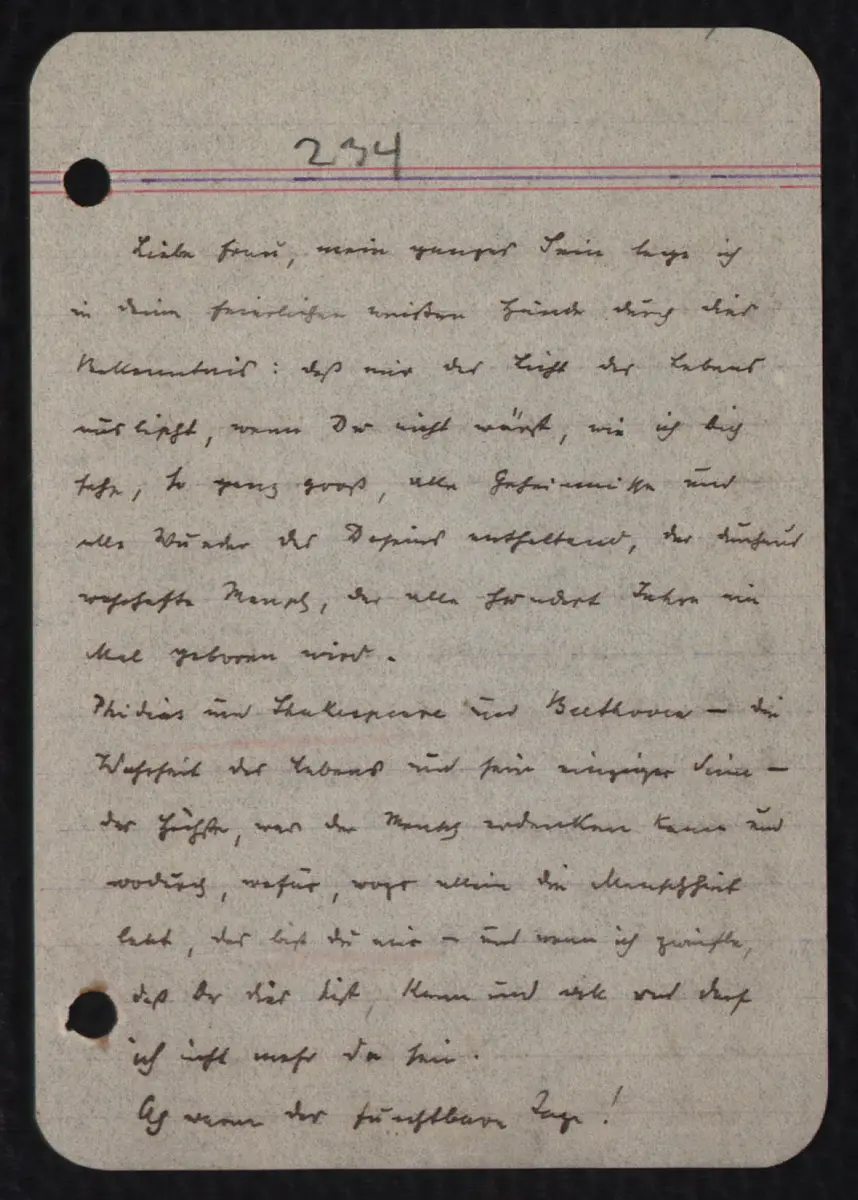 234
Liebe Frau, mein ganzes Sein lege ich
in deine feierlichen weißen Hände durch dies
Bekenntnis: daß mir das Licht des Lebens
auslischt, wenn Du nicht wärst, wie ich Dich
sehe, so ganz groß, alle Geheimnisse und
alle Wunder des Daseins enthaltend, der durchaus
wahrhafte Mensch, der alle hundert Jahre ein
Mal geboren wird.
Phidias und Shakespeare und Beethoven – die
Wahrheit des Lebens und sein einziger Sinn –
das Höchste, was der Mensch erdenken kann und
wodurch, wofür, wozu allein die Menschheit
lebt, das bist du mir – und wenn ich zweifle,
daß Du dies bist, kann und will und darf
ich nicht mehr da sein.
Ach waren das furchtbare Tage!